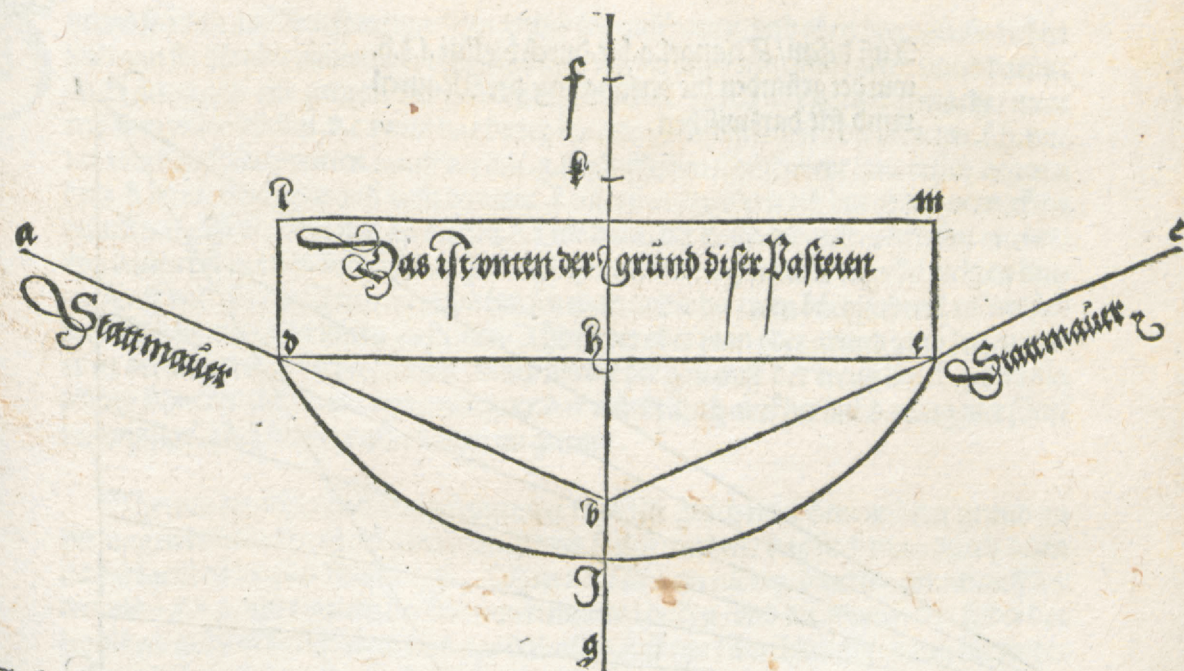 f
k
l
m
a
c
Das ist vnten der grund diser Pasteien
Stattmauer
d
h
e
Stattmauer
b
J
g